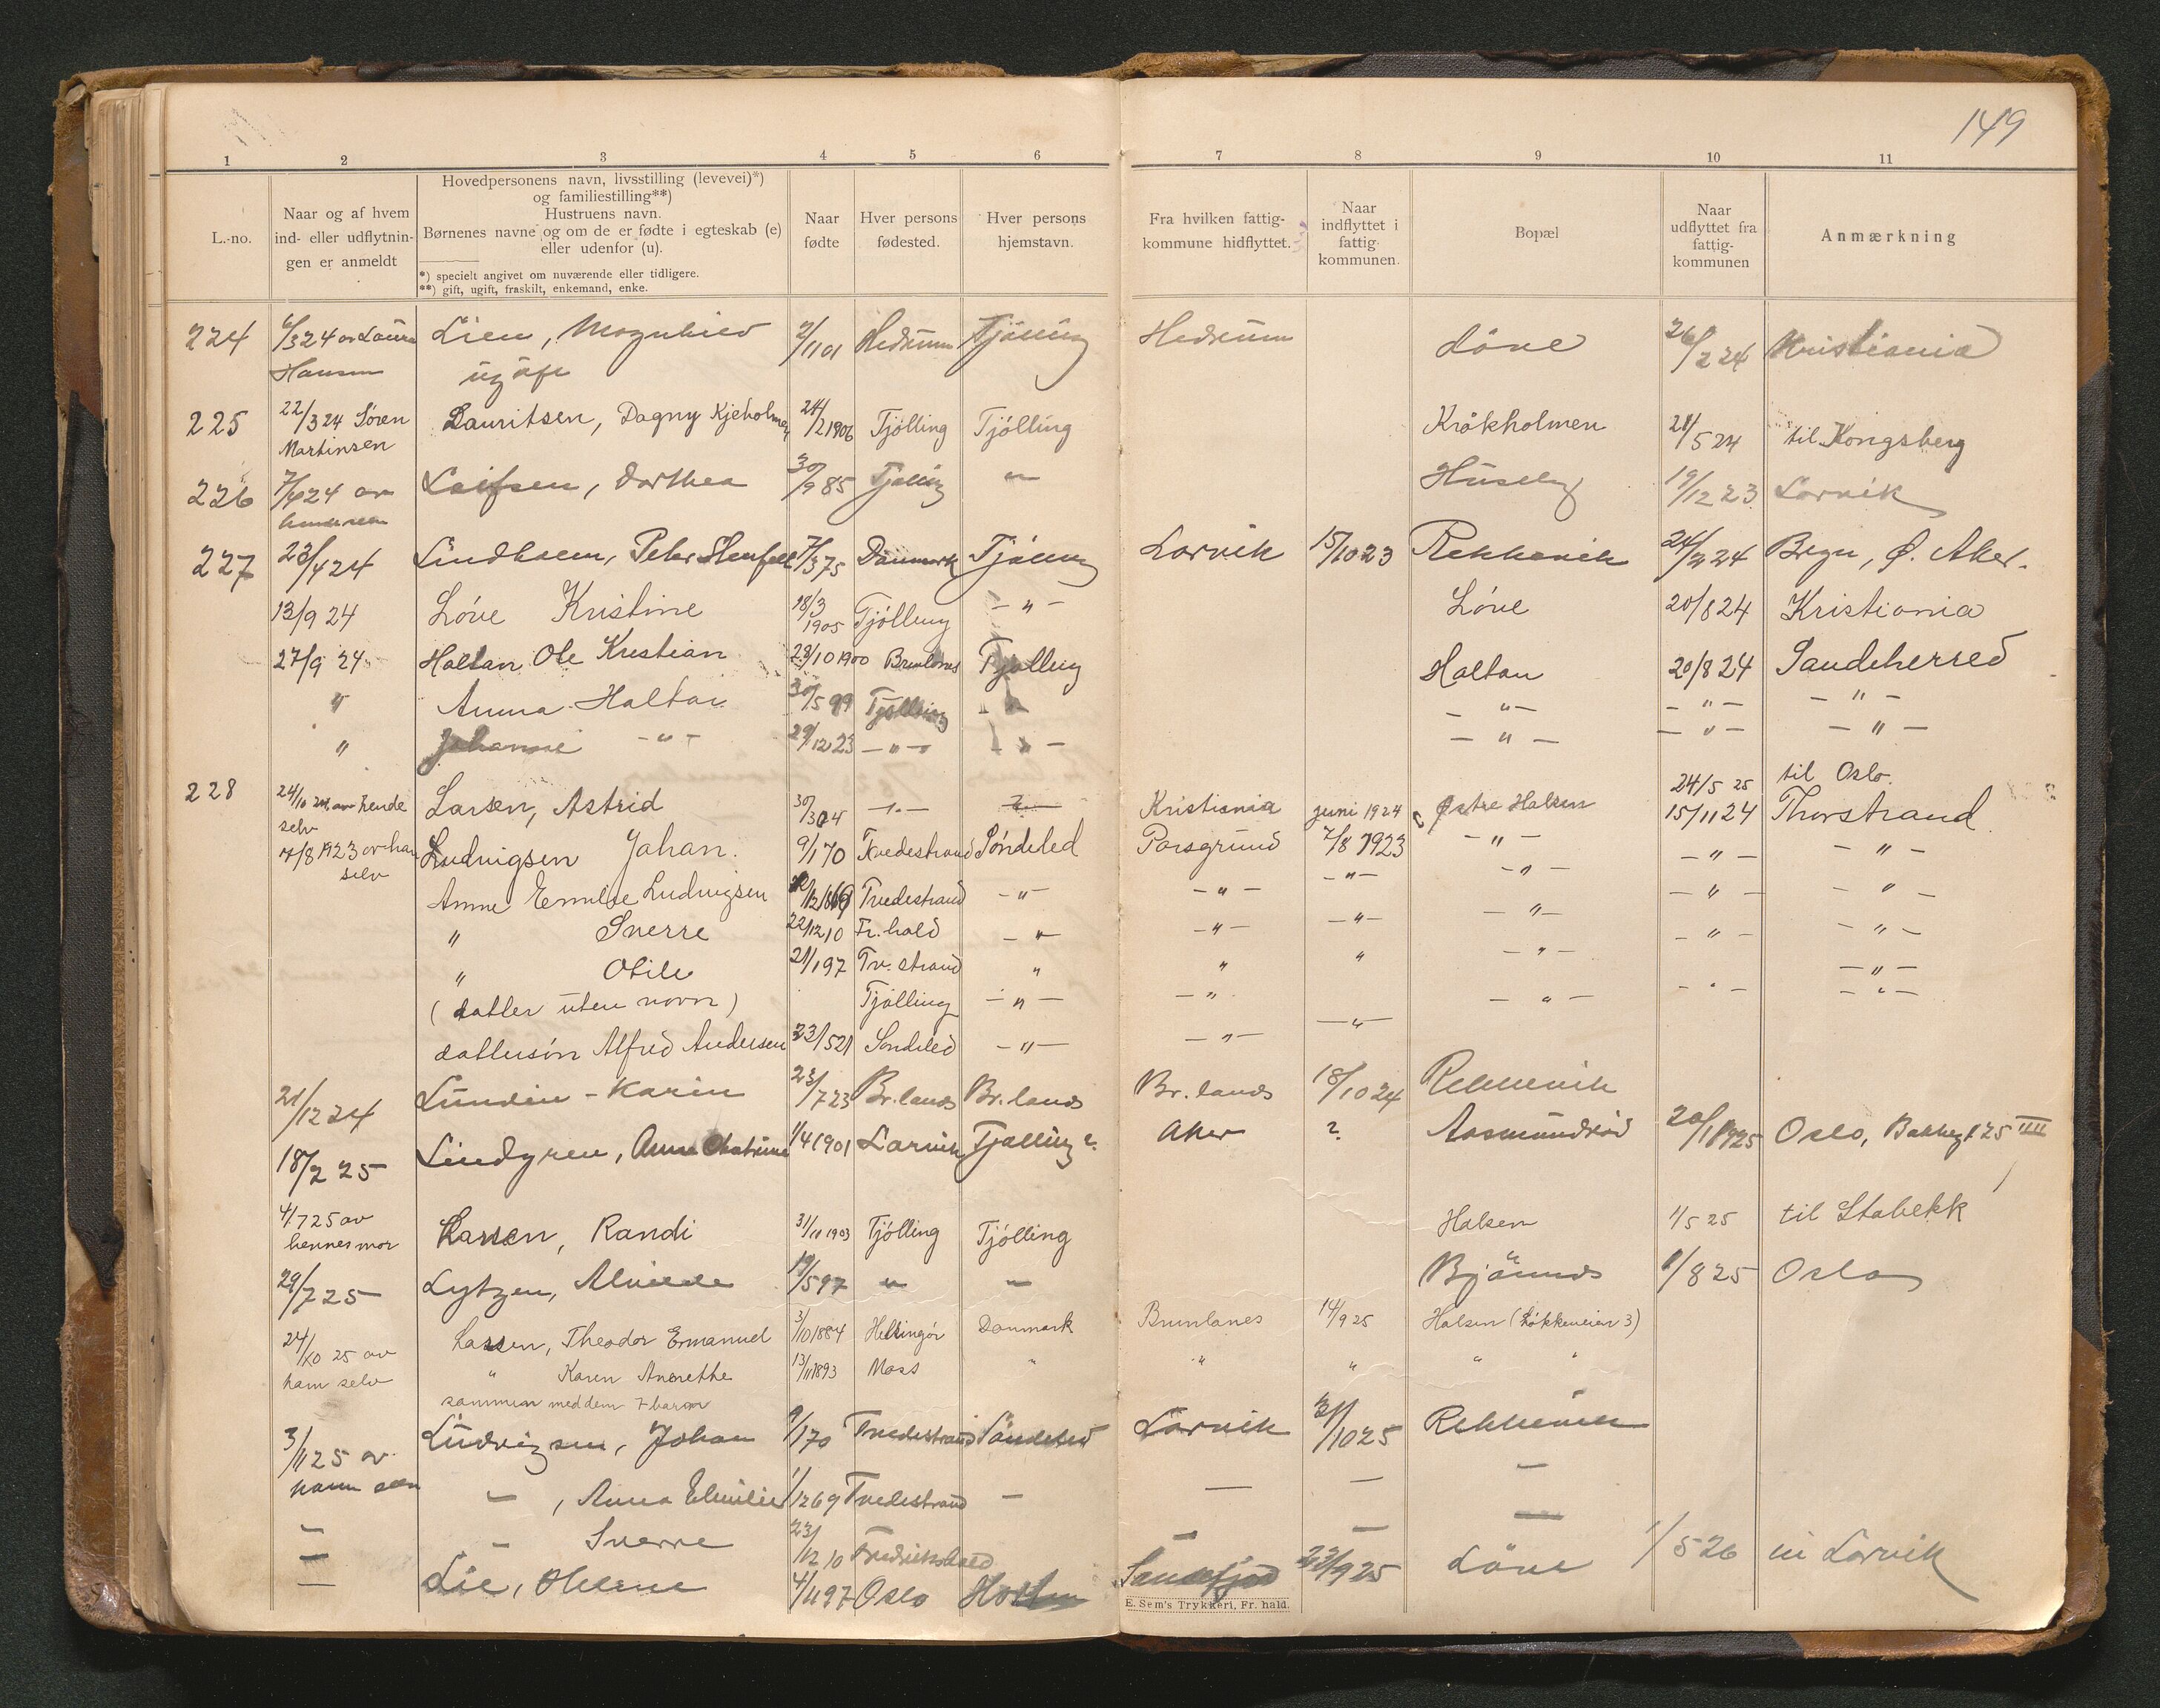 149
1 2 3 4 5 6 7 8 9 10 11
L.-no.
Naar og af hvem
ind- eller udflytnin-
gen er anmeldt
Hovedpersonens navn, livsstilling (levevei)*)
og familiestilling**)
Hustruens navn.
Børnenes navne og om de er fødte i egteskab (e)
eller udenfor (u).
*) specielt angivet om nuværende eller tidligere.
**) gift, ugift, fraskilt, enkemand, enke.
Naar
fødte
Hver persons
fødested.
Hver persons
hjemstavn.
Fra hvilken fattig-
kommune hidflyttet.
Naar
indflyttet i
fattig
kommunen.
Bopæl
Naar
udflyttet fra
fattig-
kommunen
Anmærkning
224 6/3 24 av Laura Lien, Magnhild 2/11 01 Hedrum Tjølling Hedrum Löve 26/2 24 Kristiania
Hansen ugift
225 22/3 24 Søren Lauritsen, Dagny Kjeholmen 24/2 1906 Tjölling Tjölling Kråkholmen 21/5 24 til Kongsberg
Martinsen
226 7/4 24 av Leifsen, Dorthea 30/9 85 Tjølling " Huseby 19/12 23 Larvik
227 23/4 24 Lindboem, Peter 7/3 75 Danmark Tjølling Larvik 15/10 23 Rekkevik 24/2 24 Bryn, Ø. Aker.
13/9 24 Löve Kristine 18/3 1905 Tjölling - " - Löve 20/8 24 Kristiania
27/9 24 Haltan Ole Kristian 28/10 1900 Brunlanes Tjølling Haltan 20/8 24 Sandeherred
" Anna Haltan 30/5 99 Tjølling - " - - " - - " -
" Johanne - " - 29/12 23 - " - - " - - " - - " -
228 24/10 24 av hende Larsen, Astrid 30/3 04 - " - Kristiania juni 1924 Østre Halsen 24/5 25 til Oslo.
selv
7/8 1923 av han Ludvigsen Johan. 9/1 70 Tvedestrand Söndeled Porsgrund 7/8 1923 - " - 15/11 24 Thorstrand
selv
Anne Emilie Ludvigsen 12 1869 Tvedestrand - " - - " - - " - - " - - " - - " -
" Sverre 22/12 10 Fr.hald - " - - " - - " - - " - - " -
" Otile 21/1 97 Tv. strand " " " - " - - " -
(datter uten navn) Tjölling - " - - " - - " - - " -
dattersön Alfred Andersen 23/5 21 Sondeled - " - - " - - " -
21/12 24 Lunden - Karin 23/7 23 Br.lands Br.lands Br. lands 18/10 24 Rekkevik
18/2 25 Lindgren, Anna 1/4 1901 Larvik Tjølling? Aker ? Aasmundrød 20/1 1925 Oslo, Bakkegt 25 IIII
4/7 25 av Larsen, Randi 31/10 1903 Tjölling Tjölling Halsen 1/5 25 til Stabekk
hennes mor
29/7 25 Lytzen, 19/5 97 " " Bjønnes 1/8 25 Oslo
24/10 25 av Larsen, Theodor Emanuel 3/10 1884 Helsingör Danmark Brunlanes 14/9 25 Halsen (Løkkeveien 3)
ham selv " Karen Anerethe 13/11 1893 Moss " " " " "
sammen med dem 7 barn
3/11 25 av Ludvigsen, Johan 9/1 70 Tvedestrand Søndeled Larvik 31/10 25 Rekkevik
ham selv — , Anna Emilie 1/12 69 Tvedestrand — — — —
— — Sverre 23/12 10 Fredrikshald — — —
— Lie, Helene 4/11 97 Oslo Sandefjord 23/9 25 Löve 1/5 26 til Larvik
E. Sem's Trykkeri, Fr. hald.